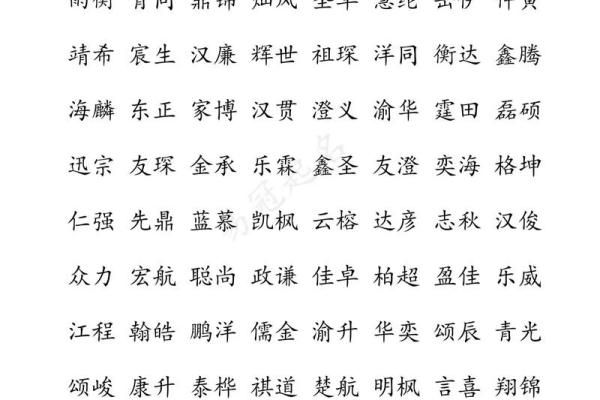 靖希 宸生 汉廉 辉世 祖琛 洋同 衡达 鑫腾
海麟 东正 家博 汉贯 澄义 渝华 霆田 磊硕
迅宗 友琛 金承 乐霖 鑫圣 友澄 奕海 格坤
仁强 先鼎 蓝慕 凯枫 云榕 达彦 志秋 汉俊
众力 宏航 聪尚 政谦 佳卓 柏超 盈佳 乐威
江程 翰皓 鹏洋 儒金 渝升 华奕 颂辰 青光
颂峻 康升 泰桦 祺道 楚航 明枫 言喜 翔锦